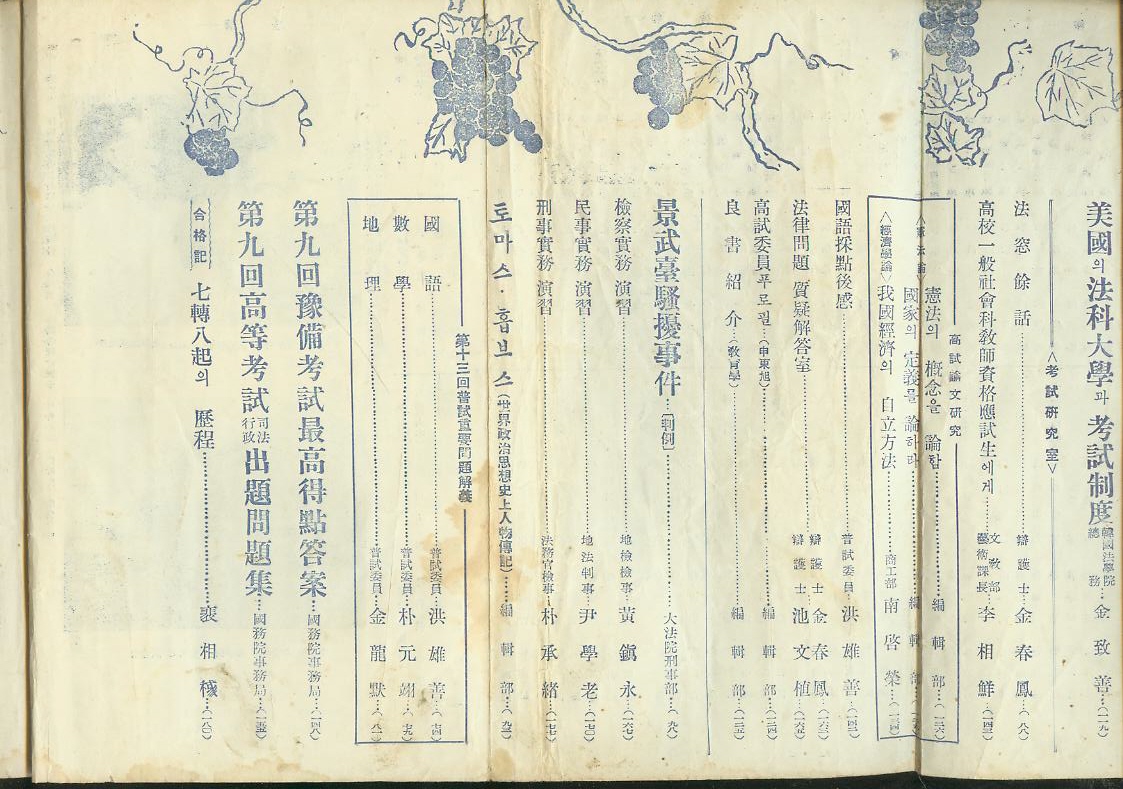 美國의 法科大學과 考試制度 韓國法學院總務…金致善…(一一九)
<考試研究室>
法窓餘話……辯護士…金春鳳…(八八)
高校一般社會科敎師資格應試生에게……文敎部藝術課長…李相鮮…(一四三)
高試論文研究
憲法의 槪念을 論함……編輯部…(一二六)
國家의 定義를 論하라……編輯部
<經濟學論>我國經濟의 自立方法……商工部 南啓榮…(一三四)
國語採點後感……普試委員…洪雄善…(一四二)
法律問題 質疑解答室……辯護士 金春鳳…(一六三) 辯護士 池文植…(一六五)
高試委員푸로필…(申東旭)……編輯部…(一二四)
良書紹介…(敎育學)……編輯部…(一三五)
景武臺騷擾事件…〔判例〕……大法院刑事部…(九八)
檢察實務 演習……地檢檢事…黃鎭永…(一六七)
民事實務 演習……地法判事…尹學老…(一七〇)
刑事實務 演習……法務官檢事…朴承緖…(一七七)
토마스·흡브스(世界政治思想史上人物傳記)……編輯部…(九三)
第十三回普試重要問題解義
國語……普試委員…洪雄善…(七四)
數學……普試委員…朴元翊…(七九)
地理……普試委員…金龍默…(八一)
第九回豫備考試最高得點答案…國務院事務局…(一四八)
第九回高等考試 司法行政 出題問題集…國務院事務局…(一五五)
合格記 七轉八起의 歷程……裵相穖…(一八〇)